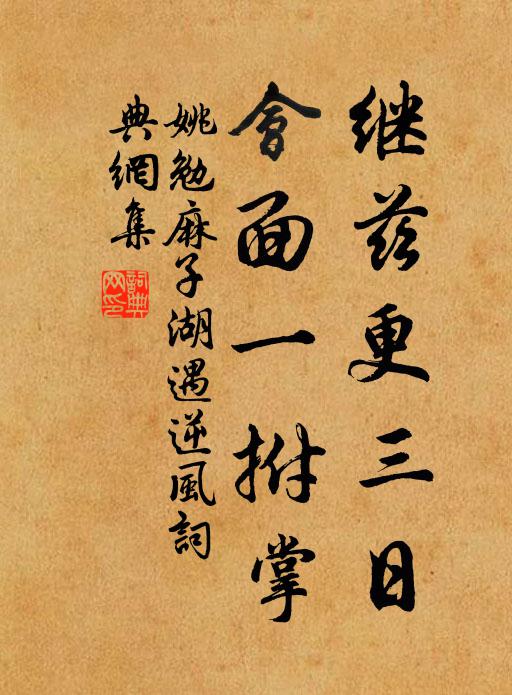 继茲更三日
會面一拊掌
姚勉麻子湖遇逆風詞
典網集
詞典网印